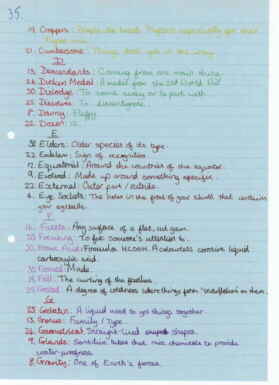 35.
19. Coppers: People the
21. Cumbersome: Things that get in the way.
D
13. Descendants: Coming from one main thing.
24. Dickin Medal: A medal from the 2nd World War
30. Dislodge: To come away or to part with.
25. Dissolve: To disintegrate.
8. Downy: Fluffy
22. Dozen: 12.
E
38 Elders: Older species of its type.
22 Emblem: Sign of recognition.
17. Equatorial: Around the countries of the equator.
9. Evolved: Made up around something specific.
22 External: Outer part / outside.
4. Eye Sockets: The holes in the front of your skull that contains
your eyeballs.
F
16. Facets: Any surface of a flat, cut gem.
23 Focusing: To fix someone's attention to.
30 Formic Acid: Formula HCOOH. A colourless corrosive liquid
carboxylic acid.
30 Formed: Made.
29 Frill: The curling of the feathers.
29 Frosted: A degree of coldness where things form
G
23 Gelatin: A liquid used to get things together
13. Genus: Family / Type.
24 Geometrical: Straight-lined shapes.
9. Glands: Sensitive tubes that run chemicals to provide
water-proofness.
8 Gravity: One of Earth's forces.